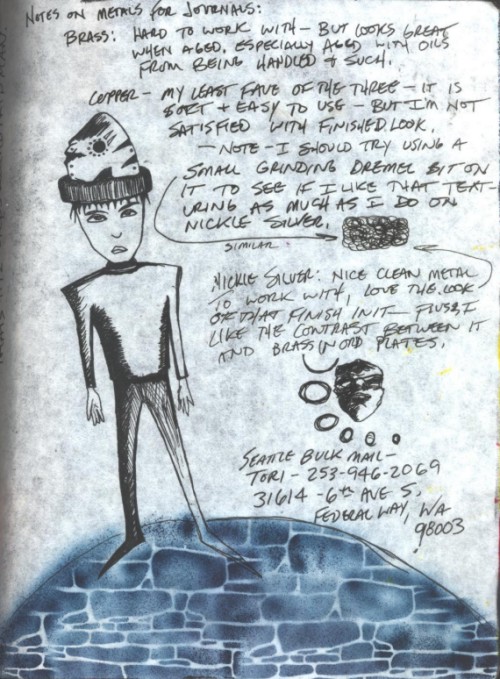 NOTES ON METALS FOR JOURNALS:
BRASS: HARD TO WORK WITH - BUT LOOKS GREAT
WHEN AGED, ESPECIALLY AGED WITH OILS
FROM BEING HANDLED & SUCH.
COPPER - MY LEAST FAVE OF THE THREE - IT IS
SORT + EASY TO USE - BUT I'M NOT
SATISFIED WITH FINISHED LOOK.
- NOTE - I SHOULD TRY USING A
SMALL GRINDING DREMEL BIT ON
IT TO SEE IF I LIKE THAT TEXT-
URING AS MUCH AS I DO ON
NICKLE SILVER.
SIMILAR
NICKLE SILVER: NICE CLEAN METAL
TO WORK WITH, LOVE THE LOOK
OF THAT FINISH IN IT - PLUS, I
LIKE THE CONTRAST BETWEEN IT
AND BRASS WORD PLATES.
SEATTLE BULK MAIL -
TORI - 253-946-2069
31614 - 6th AVE S.
FEDERAL WAY, WA
98003